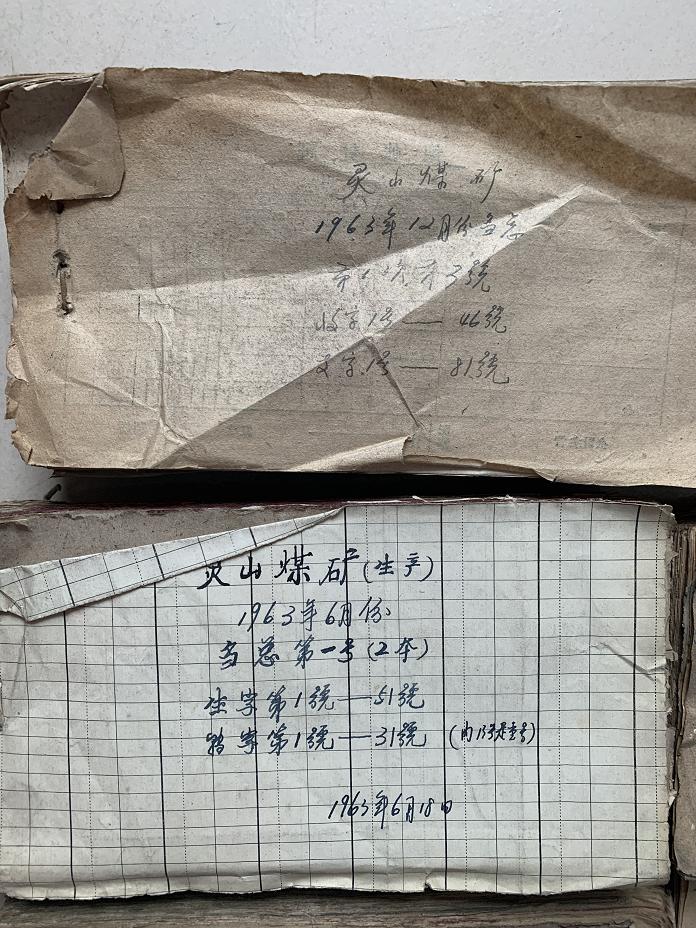 灵山煤矿
1963年12月份
號
收字1号——46號
支字1号——81號
灵山煤矿(生产)
1963年6月份
第一号(2本)
生字第1號——51號
字第1號——31號
1963年6月18日